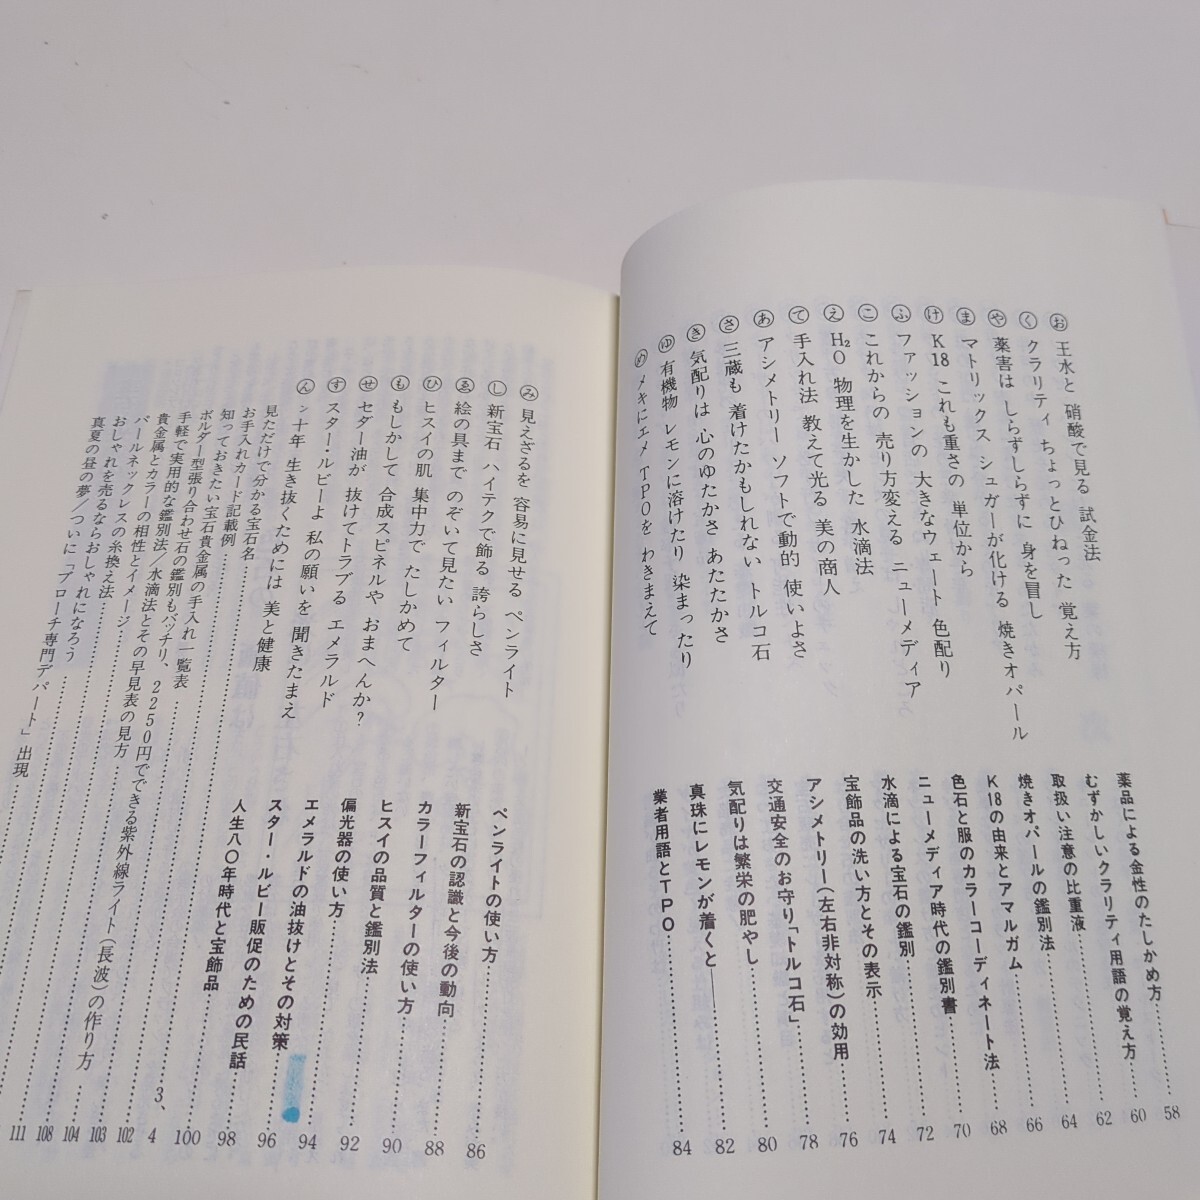 お 王水と 硝酸で見る 試金法
薬品による金性のたしかめ方 58
く クラリティ ちょっとひねった 覚え方
むずかしいクラリティ用語の覚え方 60
や 薬害は しらずしらずに 身を冒し
取扱い注意の比重液 62
ま マトリックス シュガーが化ける 焼きオパール
焼きオパールの鑑別法 64
け K18 これも重さの 単位から
K18の由来とアマルガム 66
ふ ファッションの 大きなウェート 色配り
色石と服のカラーコーディネート法 68
こ これからの 売り方変える ニューメディア
ニューメディア時代の鑑別書 70
え H₂O 物理を生かした 水滴法
水滴による宝石の鑑別 72
て 手入れ法 教えて光る 美の商人
宝飾品の洗い方とその表示 74
あ アシメトリー ソフトで動的 使いよさ
アシメトリー(左右非対称)の効用 76
さ 三蔵も 着けたかもしれない トルコ石
交通安全のお守り「トルコ石」 78
き 気配りは 心のゆたかさ あたたかさ
気配りは繁栄の肥やし 80
ゆ 有機物 レモンに溶けたり 染まったり
真珠にレモンが着くと—— 82
め メキにエメ TPOを わきまえて
業者用語とTPO 84
み 見えざるを 容易に見せる ペンライト
ペンライトの使い方 86
し 新宝石 ハイテクで飾る 誇らしさ
新宝石の認識と今後の動向 88
ゑ 絵の具まで のぞいて見たい フィルター
カラーフィルターの使い方 90
ひ ヒスイの肌 集中力で たしかめて
ヒスイの品質と鑑別法 92
も もしかして 合成スピネルや おまへんか?
偏光器の使い方 94
せ セダー油が 抜けてトラブる エメラルド
エメラルドの油抜けとその対策 96
す スター・ルビーよ 私の願いを 聞きたまえ
スター・ルビー販促のための民話 98
ん ン十年 生き抜くためには 美と健康
人生八〇年時代と宝飾品 100
見ただけで分かる宝石名 3、4
お手入れカード記載例 102
知っておきたい宝石貴金属の手入れ一覧表 103
ボルダー型張り合わせ石の鑑別もバッチリ、2250円でできる紫外線ライト(長波)の作り方 104
手軽で実用的な鑑別法/水滴法とその早見表の見方 108
貴金属とカラーの相性とイメージ 111
パールネックレスの糸換え法
おしゃれを売るならおしゃれになろう
真夏の昼の夢/ついに「ブローチ専門デパート」出現